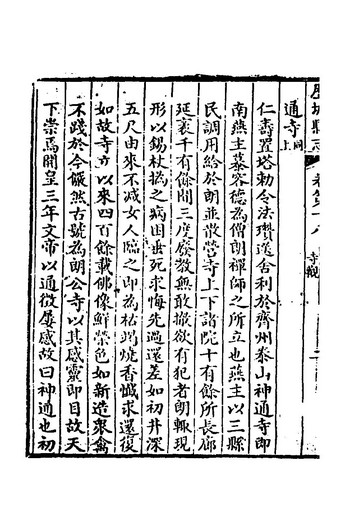 歷城縣志 卷第十八 寺觀
通寺 同上
仁壽置塔勅令法瓚送舍利於齊州泰山神通寺即
南燕主慕容德為僧朗禪師之所立也燕主以三縣
民調用給於朗並散營寺上下諸院十有餘所長廊
延袤千有餘間三度廢教無敢撤欲有犯者朗輒現
形以錫杖撝之病困垂死求悔先過還差如初井深
五尺由來不減女人臨之即為枯渴燒香懺求還復
如故寺立以來四百餘載佛像鮮榮色如新造衆禽
不踐於今儼然古號為朗公寺以其感靈即目故天
下崇焉開皇三年文帝以通徵屢感故曰神通也初